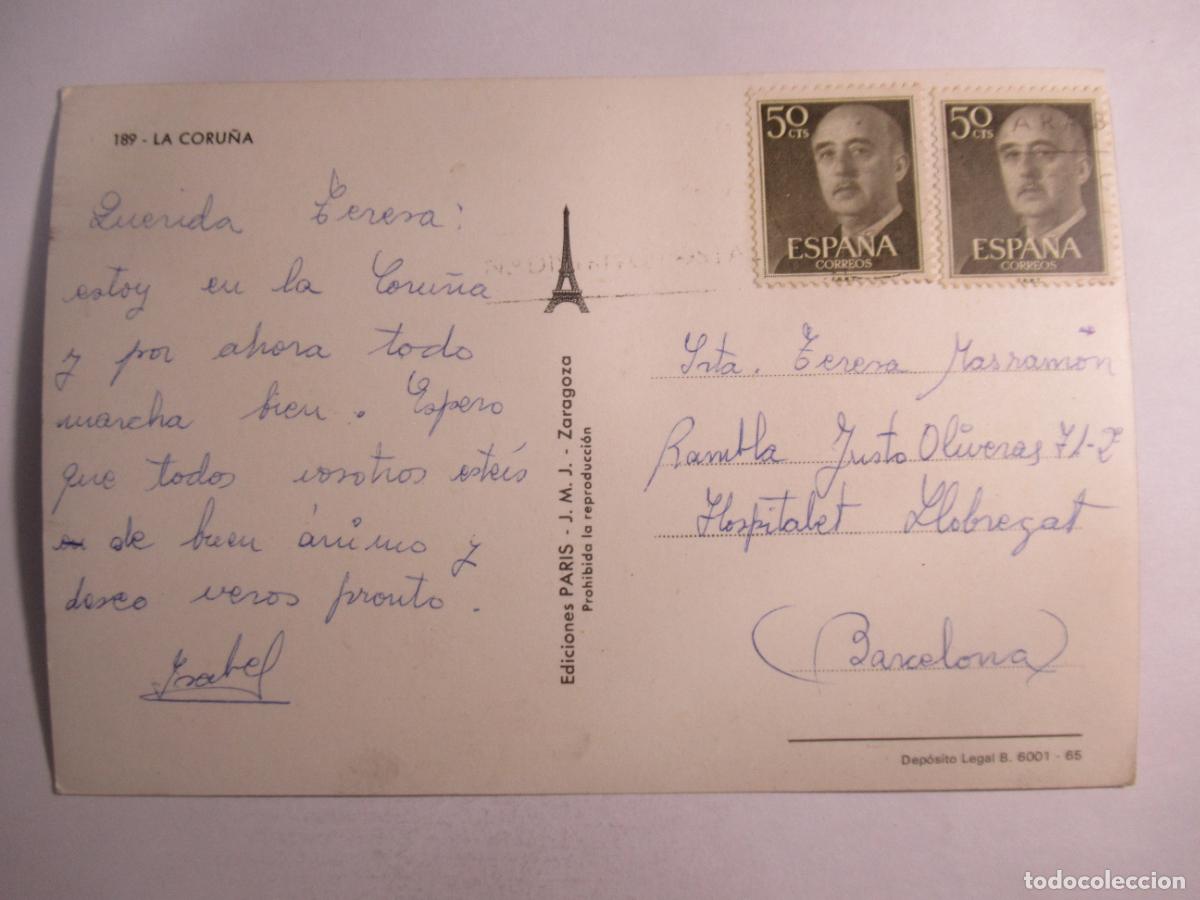 189 - LA CORUÑA
Querida Teresa:
estoy en la Coruña
y por ahora todo
marcha bien. Espero
que todos vosotros esteis
de buen ánimo y
deseo veros pronto.
Isabel
Ediciones PARIS - J. M. J. - Zaragoza
Prohibida la reproducción
50 CTS
ESPAÑA
CORREOS
50 CTS
ESPAÑA
CORREOS
Srta. Teresa Masramón
Rambla Justo Oliveras 71-2
Hospitalet Llobregat
(Barcelona)
Depósito Legal B. 6001 - 65
todocoleccion